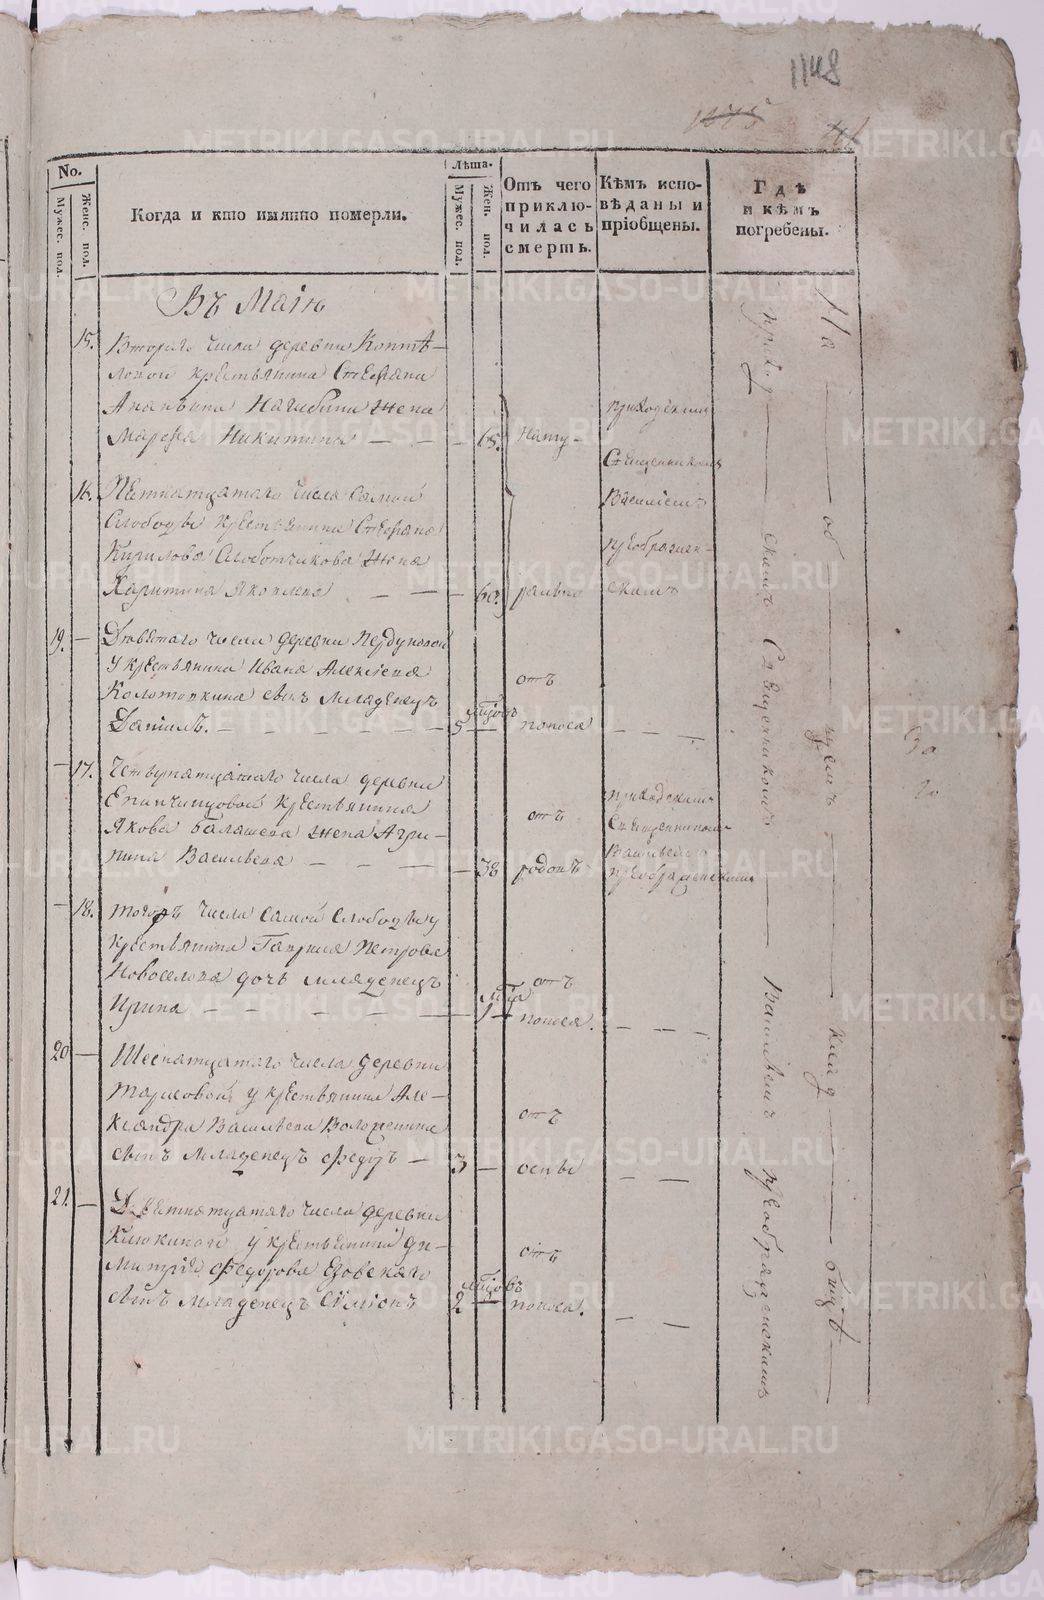 1148
No.
Мужес. пол.
Женс. пол.
Когда и кто имянно померли.
Лѣта.
Мужес. пол.
Жен. пол.
Отъ чего приклю-
чилась
смерть.
Кѣмъ испо-
вѣданы и
пріобщены.
Гдѣ
и кѣмъ
погребены.
Въ Маіи
15. Втораго числа деревни Коптѣ-
ловой крестьянина Стефана
Ананьина Нагибина жена
Марфа Никитина — — — 65. нату-
приходскимъ
Священникомъ
16. Пятнатцатаго числа самой
Слободы крестьянина Стефана
Кирилова Слободчикова жена
Харитина Яковлева — — — 60. рально
Василіемъ
преображен-
скимъ
19. — Девятаго числа деревни
у крестьянина Ивана Алексіева
Колотовкина сынъ младенецъ
Данилъ. — — — 5 мцовъ — отъ поноса — — —
— 17. Четырнатцатаго числа деревни
Епанчинцовой крестьянина
Якова Балашева жена Агри-
пина Васильева — — — 38 отъ родовъ
приходскимъ
Священникомъ
Васильемъ
преображенскимъ
— 18. числа самой Слободы у
крестьянина Гаврила Петрова
Новоселова дочь младенецъ
Ирина — — — — — 1 отъ поноса. — — —
20 — Шеснатцатаго числа деревни
у крестьянина Але-
ксандра Васильева
сынъ младенецъ Федоръ — 3 — отъ оспы — —
21. — Девятнатцатаго числа деревни
у крестьянина Ди-
митрія Федорова Езовскаго
сынъ младенецъ Симіонъ 2 мцовъ — отъ поноса. — —
На — об — щемъ — клад — бищѣ —
при — — скимъ Священникомъ — Васильемъ преображенскимъ
METRIKI.GASO-URAL.RU